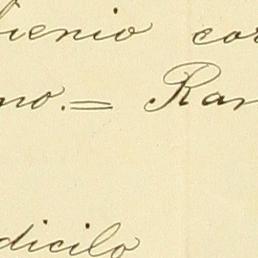 bienio cor
no.= Ram
dicilo